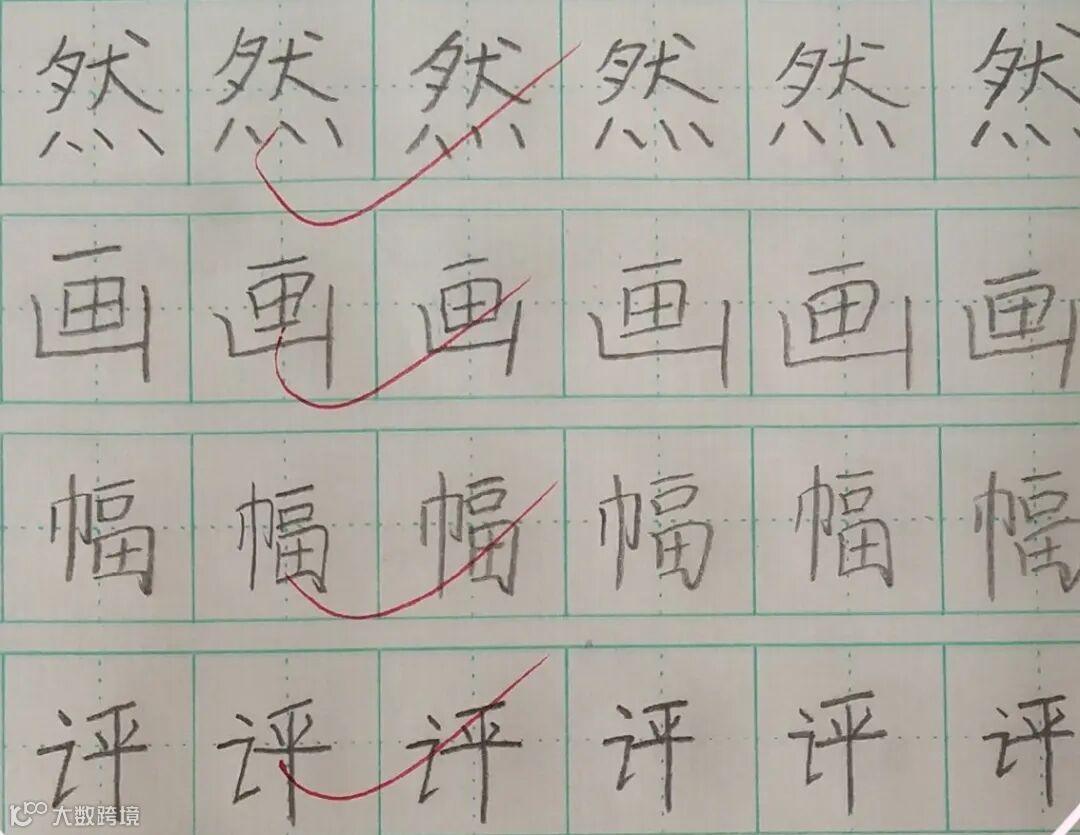 然然然然然然
画画画画画画
幅幅幅幅幅幅
评评评评评评
大数跨境